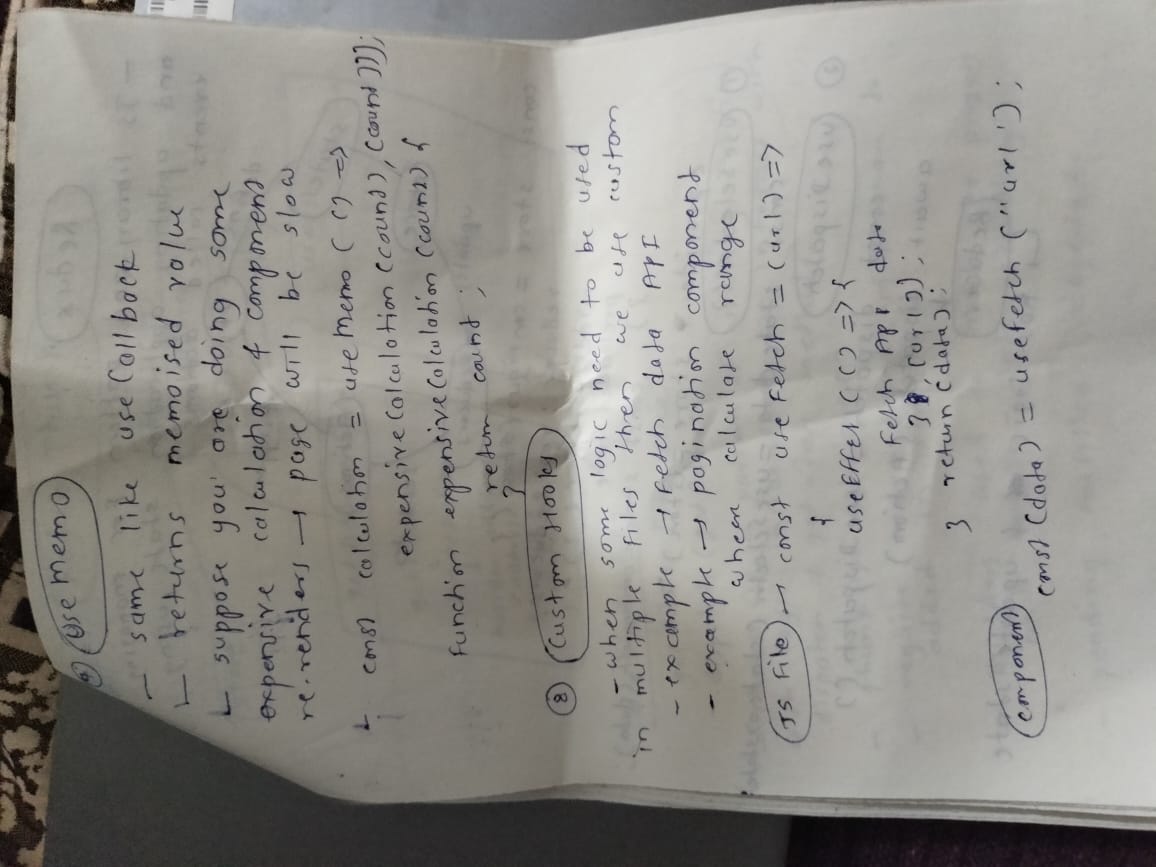 Use memo
- same like useCallback
- returns memoised value
- suppose you are doing some
expensive calculation & component
re-renders → page will be slow
const calculation = usememo (() =>
expensiveCalculation (count), (count)));
function expensiveCalculation (count) {
return count ;
}
8 Custom Hooks
- when some logic need to be used
in multiple files then we use custom
- example → fetch data API
- example → pagination component
where calculate range
JS File → const useFetch = (url) =>
{
useEffect (() => {
Fetch API data
}, (url));
} return (data);
component
const (data) = useFetch ("url');